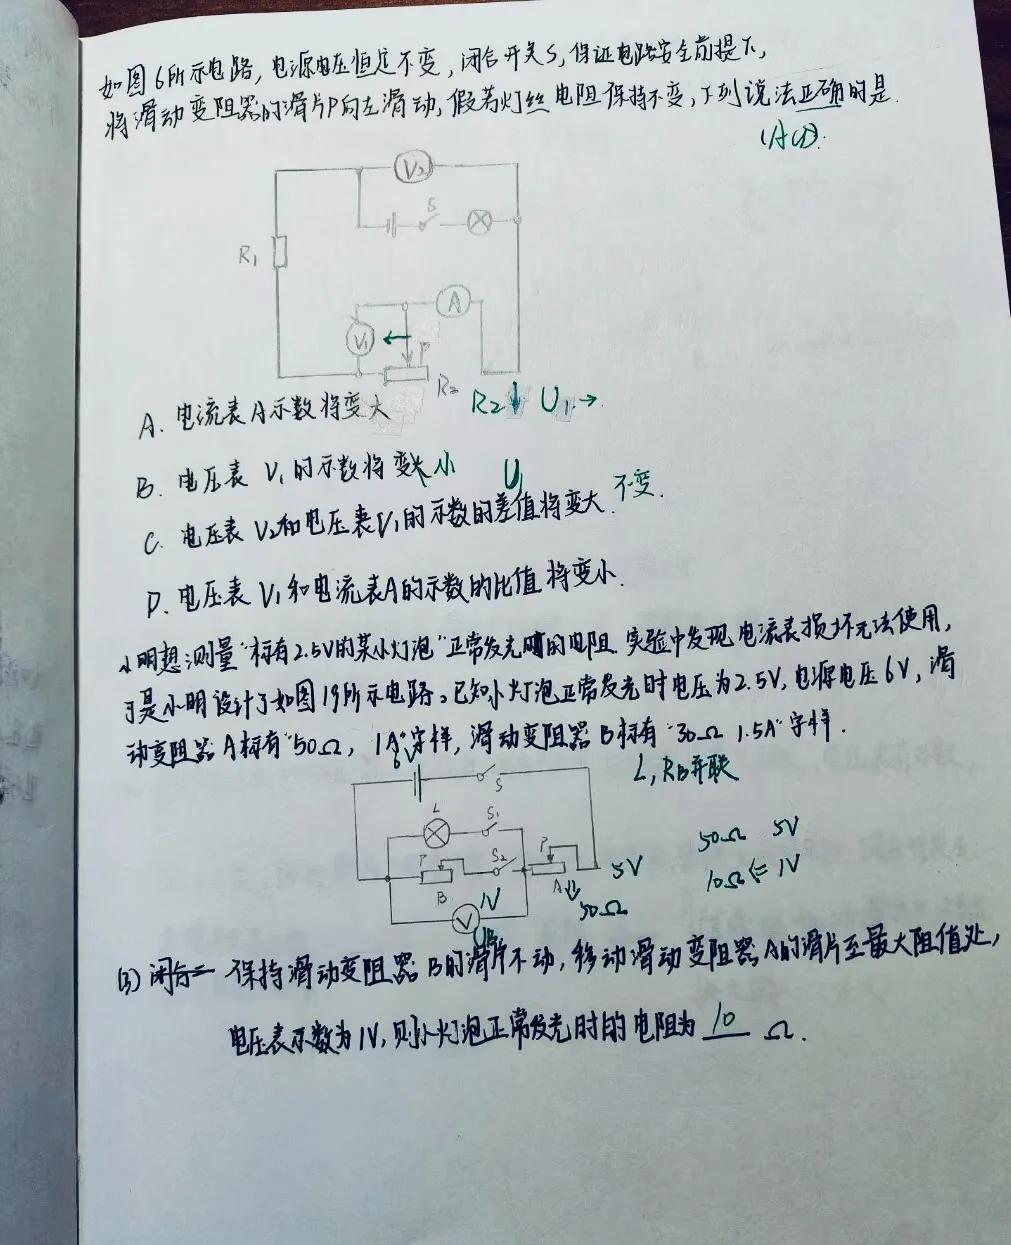 如图6所示电路,电源电压恒定不变,闭合开关S,保证电路安全前提下,
将滑动变阻器的滑片P向左滑动,假若灯丝电阻保持不变,下列说法正确的是
V₂
S
R₁
A
V₁
P
R₂
R₂↓ U₁→
A. 电流表A示数将变大
B. 电压表 V₁的示数将变小
U
C. 电压表 V₂和电压表V₁的示数的差值将变大. 不变.
D. 电压表 V₁和电流表A的示数的比值将变小.
小明想测量“标有2.5V的某小灯泡”正常发光时的电阻.实验中发现电流表损坏无法使用,
于是小明设计了如图19所示电路。已知小灯泡正常发光时电压为2.5V,电源电压6V,滑
动变阻器A标有“50Ω, 1A”字样,滑动变阻器B标有“30Ω 1.5A”字样.
6V
L,RB并联
S
L S₁
50Ω 5V
P S₂ P
5V
10Ω ⇐ 1V
B 1V A
50Ω
V
(3) 闭合二 保持滑动变阻器B的滑片不动,移动滑动变阻器A的滑片至最大阻值处,
电压表示数为1V,则小灯泡正常发光时的电阻为 10 Ω.